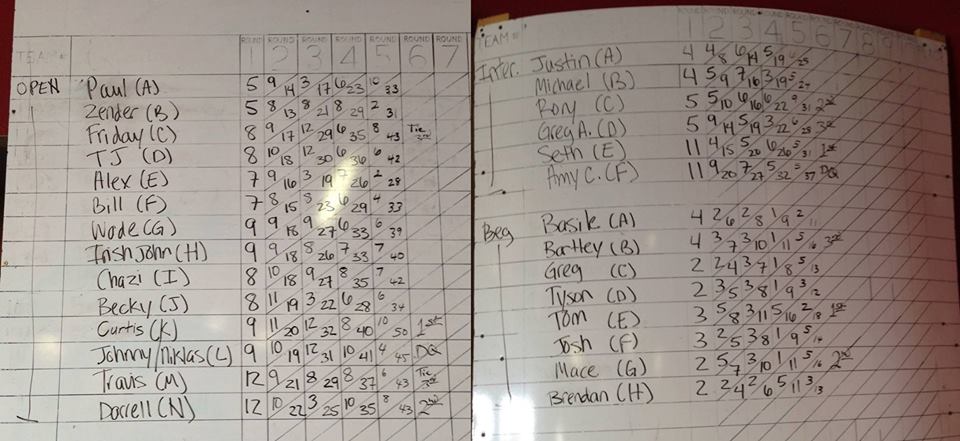 TEAM # ROUND 1 ROUND 2 ROUND 3 ROUND 4 ROUND 5 ROUND 6 ROUND 7
OPEN Paul (A) 5 9/14 3/17 6/23 10/33
Zender (B) 5 8/13 8/21 8/29 2/31
Friday (C) 8 9/17 12/29 6/35 8/43 Tie 3rd
TJ (D) 8 10/18 12/30 6/36 6/42
Alex (E) 7 9/16 3/19 7/26 2/28
Bill (F) 7 8/15 8/23 6/29 4/33
Wade (G) 9 9/18 9/27 6/33 6/39
Irish John (H) 9 9/18 8/26 7/33 7/40
Chazi (I) 8 10/18 9/27 8/35 7/42
Becky (J) 8 11/19 3/22 6/28 6/34
Curtis (K) 9 11/20 12/32 8/40 10/50 1st
Johnny/Niklas (L) 9 10/19 12/31 10/41 4/45 DQ
Travis (M) 12 9/21 8/29 8/37 6/43 Tie 3rd
Darrell (N) 12 10/22 3/25 10/35 8/43 2nd
TEAM # 1 2 3 4 5 6 7 8
Inter. Justin (A) 4 4/8 6/14 5/19 6/25
Michael (B) 4 5/9 7/16 3/19 5/24
Rory (C) 5 5/10 6/16 6/22 9/31 2nd
Greg A. (D) 5 9/14 5/19 3/22 6/28 3rd
Seth (E) 11 4/15 5/20 6/26 5/31 1st
Amy C. (F) 11 9/20 7/27 5/32 5/37 DQ
Beg Basik (A) 4 2/6 2/8 1/9 2/11
Bartley (B) 4 3/7 3/10 1/11 5/16 3rd
Greg (C) 2 2/4 3/7 1/8 5/13
Tyson (D) 2 3/5 3/8 1/9 3/12
Tom (E) 3 5/8 3/11 5/16 2/18 1st
Josh (F) 3 2/5 3/8 1/9 5/14
Mace (G) 2 5/7 3/10 1/11 5/16 2nd
Brendan (H) 2 2/4 2/6 5/11 3/13